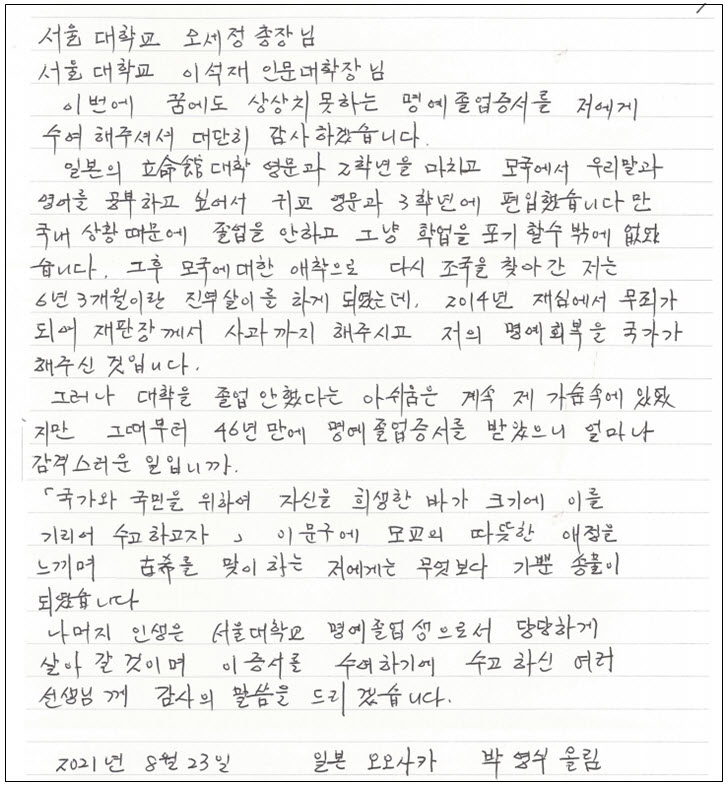 서울 대학교 오세정 총장님
서울 대학교 이석재 인문대학장님
이번에 꿈에도 상상치 못하는 명예졸업증서를 저에게
수여 해주셔서 대단히 감사하겠습니다.
일본의 立命館대학 영문과 2학년을 마치고 모국에서 우리말과
영어를 공부하고 싶어서 귀교 영문과 3학년에 편입했습니다만
국내 상황때문에 졸업을 안하고 그냥 학업을 포기 할수 밖에 없었
습니다. 그후 모국에대한 애착으로 다시 조국을 찾아간 저는
6년 3개월이란 징역살이를 하게 되었는데, 2014년 재심에서 무죄가
되어 재판장께서 사과까지 해주시고 저의 명예회복을 국가가
해주신 것입니다.
그러나 대학을 졸업 안했다는 아쉬움은 계속 제 가슴속에 있었
지만 그때부터 46년만에 명예졸업증서를 받았으니 얼마나
감격스러운 일입니까.
「국가와 국민을 위하여 자신을 희생한 바가 크기에 이를
기리어 수고하고자」 이 문구에 모교의 따뜻한 애정을
느끼며 古希를 맞이 하는 저에게는 무엇보다 기쁜 송물이
되었습니다
나머지 인생은 서울대학교 명예졸업생으로서 당당하게
살아 갈 것이며 이 증서를 수여하기에 수고 하신 여러
선생님께 감사의 말씀을 드리겠습니다.
2021년 8월 23일 일본 오오사카 박영식 올림